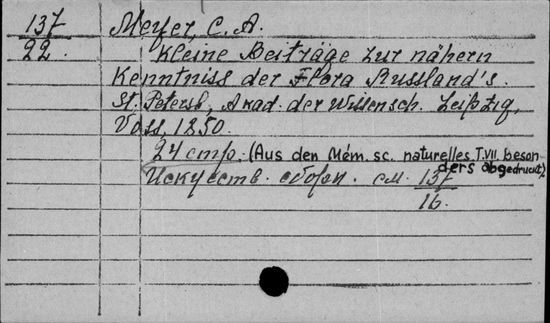 137 Meyer, C. A.
22. Kleine Beiträge zur nähern
Kenntniss der Flora Russland's.
St. Petersb, Akad. der Wissensch. Leipzig,
Voss, 1850.
24 стр. (Aus den Mém. sc. naturelles T.VII. beson
ders abgedruckt)
Искусств. сборн. см. 137
16.